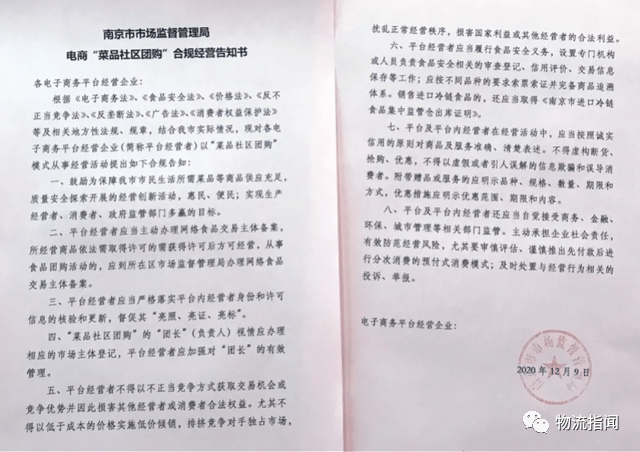 南京市市场监督管理局
电商“菜品社区团购”合规经营告知书
各电子商务平台经营企业：
根据《电子商务法》、《食品安全法》、《价格法》、《反不
正当竞争法》、《反垄断法》、《广告法》、《消费者权益保护法》
等及相关地方性法规、规章，结合我市实际情况，现对各电
子商务平台经营企业（简称平台经营者）以“菜品社区团购”
模式从事经营活动提出如下合规告知：
一、鼓励为保障我市市民生活所需菜品等商品供应充足、
质量安全探索开展的经营创新活动，惠民、便民；实现生产
经营者、消费者、政府监管部门多赢的目标。
二、平台经营者应当主动办理网络食品交易主体备案，
所经营商品依法需取得许可的需获得许可后方可经营，从事
食品团购活动的，应到所在区市场监督管理局办理网络食品
交易主体备案。
三、平台经营者应当严格落实平台内经营者身份和许可
信息的核验和更新，督促其“亮照、亮证、亮标”。
四、“菜品社区团购”的“团长”（负责人）视情应办理
相应的市场主体登记，平台经营者应加强对“团长”的有效
管理。
五、平台经营者不得以不正当竞争方式获取交易机会或
竞争优势并因此损害其他经营者或消费者合法权益。尤其不
得以低于成本的价格实施低价倾销，排挤竞争对手独占市场，
扰乱正常经营秩序，损害国家利益或其他经营者的合法利益。
六、平台经营者应当履行食品安全义务，设置专门机构
或人员负责食品安全相关的审查登记、信用评价、交易信息
保存等工作；应按不同品种的要求索票索证并完备商品追溯
体系。销售进口冷链食品的，还应当取得《南京市进口冷链
食品集中监管仓出库证明》。
七、平台及平台内经营者在经营活动中，应当按照诚实
信用的原则对商品及服务准确、清楚表述。不得虚构断货、
抢购、优惠，不得以虚假或者引人误解的信息欺骗和误导消
费者。附带赠品或服务的应明示品种、规格、数量、期限和
方式，优惠措施应明示优惠范围、期限和内容。
八、平台及平台内经营者还应当自觉接受商务、金融、
环保、城市管理等相关部门监管。主动承担企业社会责任，
有效防范经营风险，尤其要审慎评估、谨慎推出先付款后进
行分次消费的预付式消费模式；及时处置与经营行为相关的
投诉、举报。
电子商务平台经营企业：
2020年12月9日
物流指闻